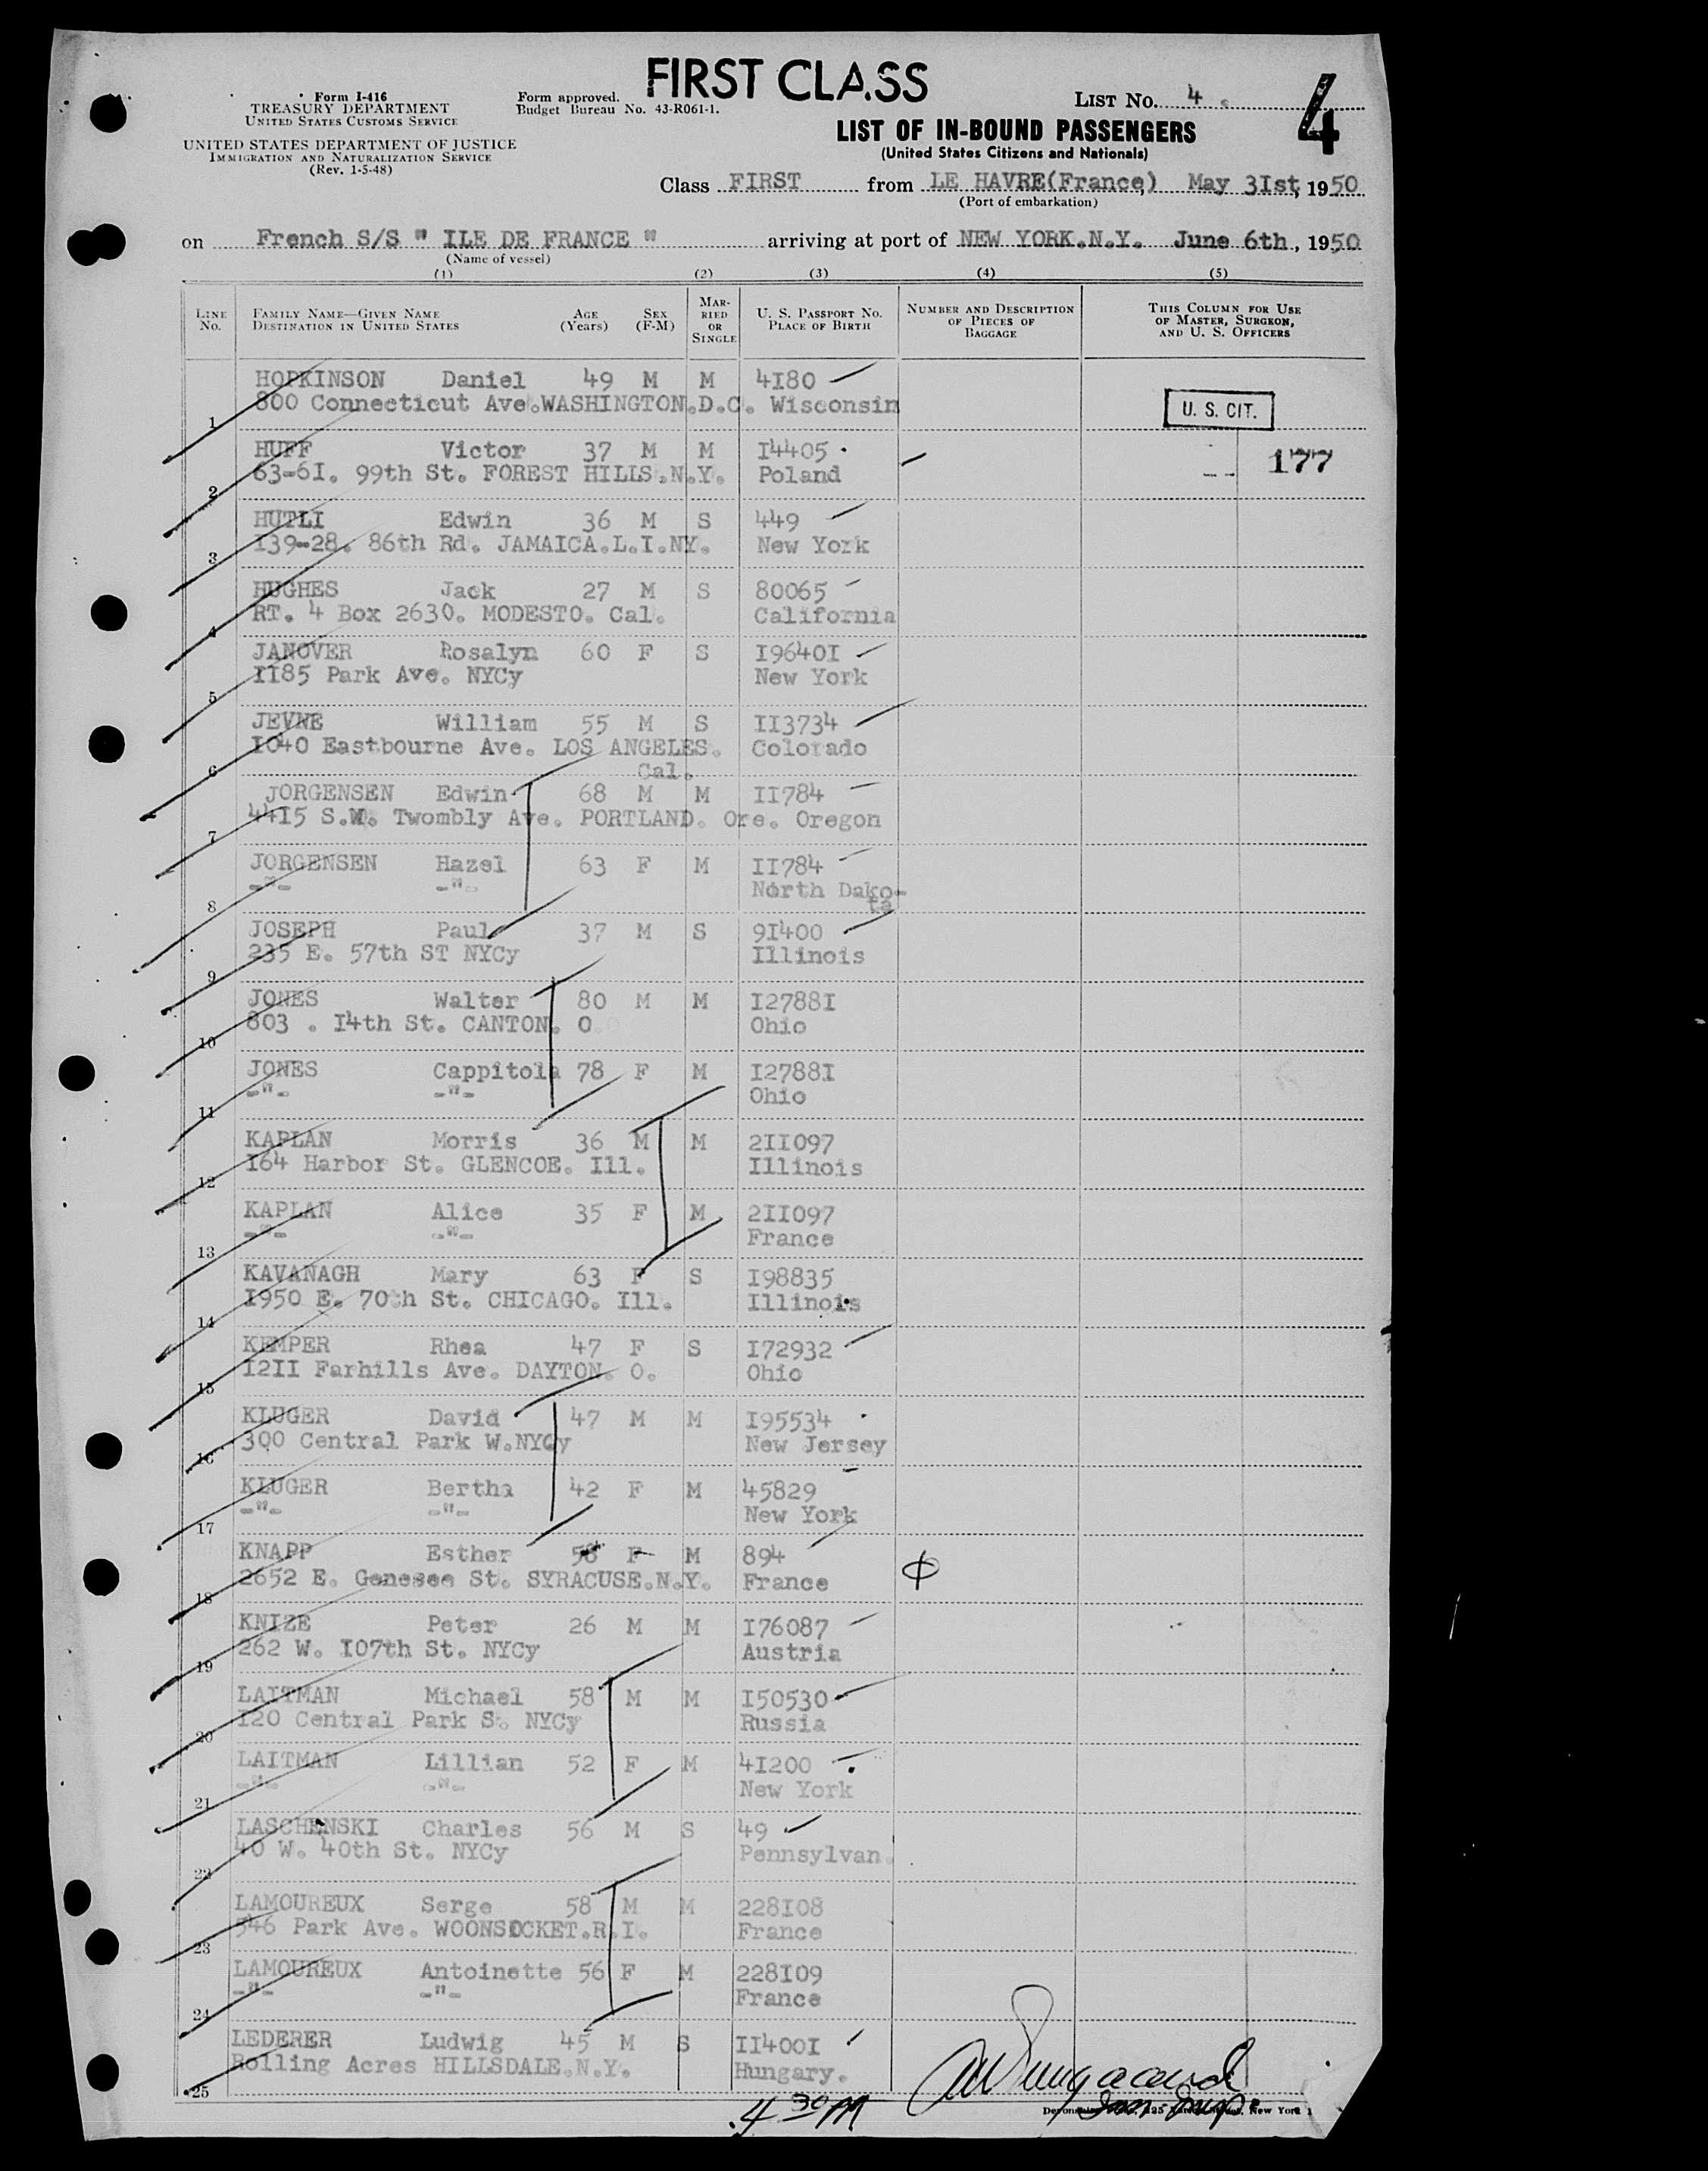 FIRST CLASS
Form I-416
TREASURY DEPARTMENT
UNITED STATES CUSTOMS SERVICE
UNITED STATES DEPARTMENT OF JUSTICE
IMMIGRATION AND NATURALIZATION SERVICE
(Rev. 1-5-48)
Form approved.
Budget Bureau No. 43-R061-1.
LIST NO. 4 .
4
LIST OF IN-BOUND PASSENGERS
(United States Citizens and Nationals)
Class FIRST from LE HAVRE(France,) May 3Ist, 1950
(Port of embarkation)
on French S/S " ILE DE FRANCE " arriving at port of NEW YORK.N.Y. June 6th, 1950
(Name of vessel)
(1) (2) (3) (4) (5)
LINE NO. FAMILY NAME—GIVEN NAME DESTINATION IN UNITED STATES AGE (Years) SEX (F-M) MARRIED OR SINGLE U. S. PASSPORT NO. PLACE OF BIRTH NUMBER AND DESCRIPTION OF PIECES OF BAGGAGE THIS COLUMN FOR USE OF MASTER, SURGEON, AND U. S. OFFICERS
HOPKINSON Daniel 49 M M 4I80
1 800 Connecticut Ave.WASHINGTON.D.C. Wisconsin U. S. CIT.
HUFF Victor 37 M M I4405 177
2 63-6I. 99th St. FOREST HILLS.N.Y. Poland
HUTLI Edwin 36 M S 449
3 I39-28. 86th Rd. JAMAICA.L.I.NY. New York
HUGHES Jack 27 M S 80065
4 RT. 4 Box 2630. MODESTO. Cal. California
JANOVER Rosalyn 60 F S I9640I
5 II85 Park Ave. NYCy New York
JEVNE William 55 M S II3734
6 I040 Eastbourne Ave. LOS ANGELES. Cal. Colorado
JORGENSEN Edwin 68 M M II784
7 44I5 S.W. Twombly Ave. PORTLAND. Ore. Oregon
JORGENSEN Hazel 63 F M II784
8 -"- -"- North Dako-ta
JOSEPH Paul 37 M S 9I400
9 235 E. 57th ST NYCy Illinois
JONES Walter 80 M M I2788I
10 803 . I4th St. CANTON. O Ohio
JONES Cappitola 78 F M I2788I
11 -"- -"- Ohio
KAPLAN Morris 36 M M 2II097
12 I64 Harbor St. GLENCOE. Ill. Illinois
KAPLAN Alice 35 F M 2II097
13 -"- -"- France
KAVANAGH Mary 63 F S I98835
14 I950 E. 70th St. CHICAGO. Ill. Illinois
KEMPER Rhea 47 F S I72932
15 I2II Farhills Ave. DAYTON. O. Ohio
KLUGER David 47 M M I95534
16 300 Central Park W.NYCy New Jersey
KLUGER Bertha 42 F M 45829
17 -"- -"- New York
KNAPP Esther 58 F M 894
18 2652 E. Genesee St. SYRACUSE.N.Y. France
KNIZE Peter 26 M M I76087
19 262 W. I07th St. NYCy Austria
LAITMAN Michael 58 M M I50530
20 I20 Central Park S. NYCy Russia
LAITMAN Lillian 52 F M 4I200
21 -"- -"- New York
LASCHENSKI Charles 56 M S 49
22 40 W. 40th St. NYCy Pennsylvan.
LAMOUREUX Serge 58 M M 228I08
23 546 Park Ave. WOONSOCKET.R.I. France
LAMOUREUX Antoinette 56 F M 228I09
24 -"- -"- France
LEDERER Ludwig 45 M S II400I
25 Rolling Acres HILLSDALE.N.Y. Hungary.
4 30 PM
New York